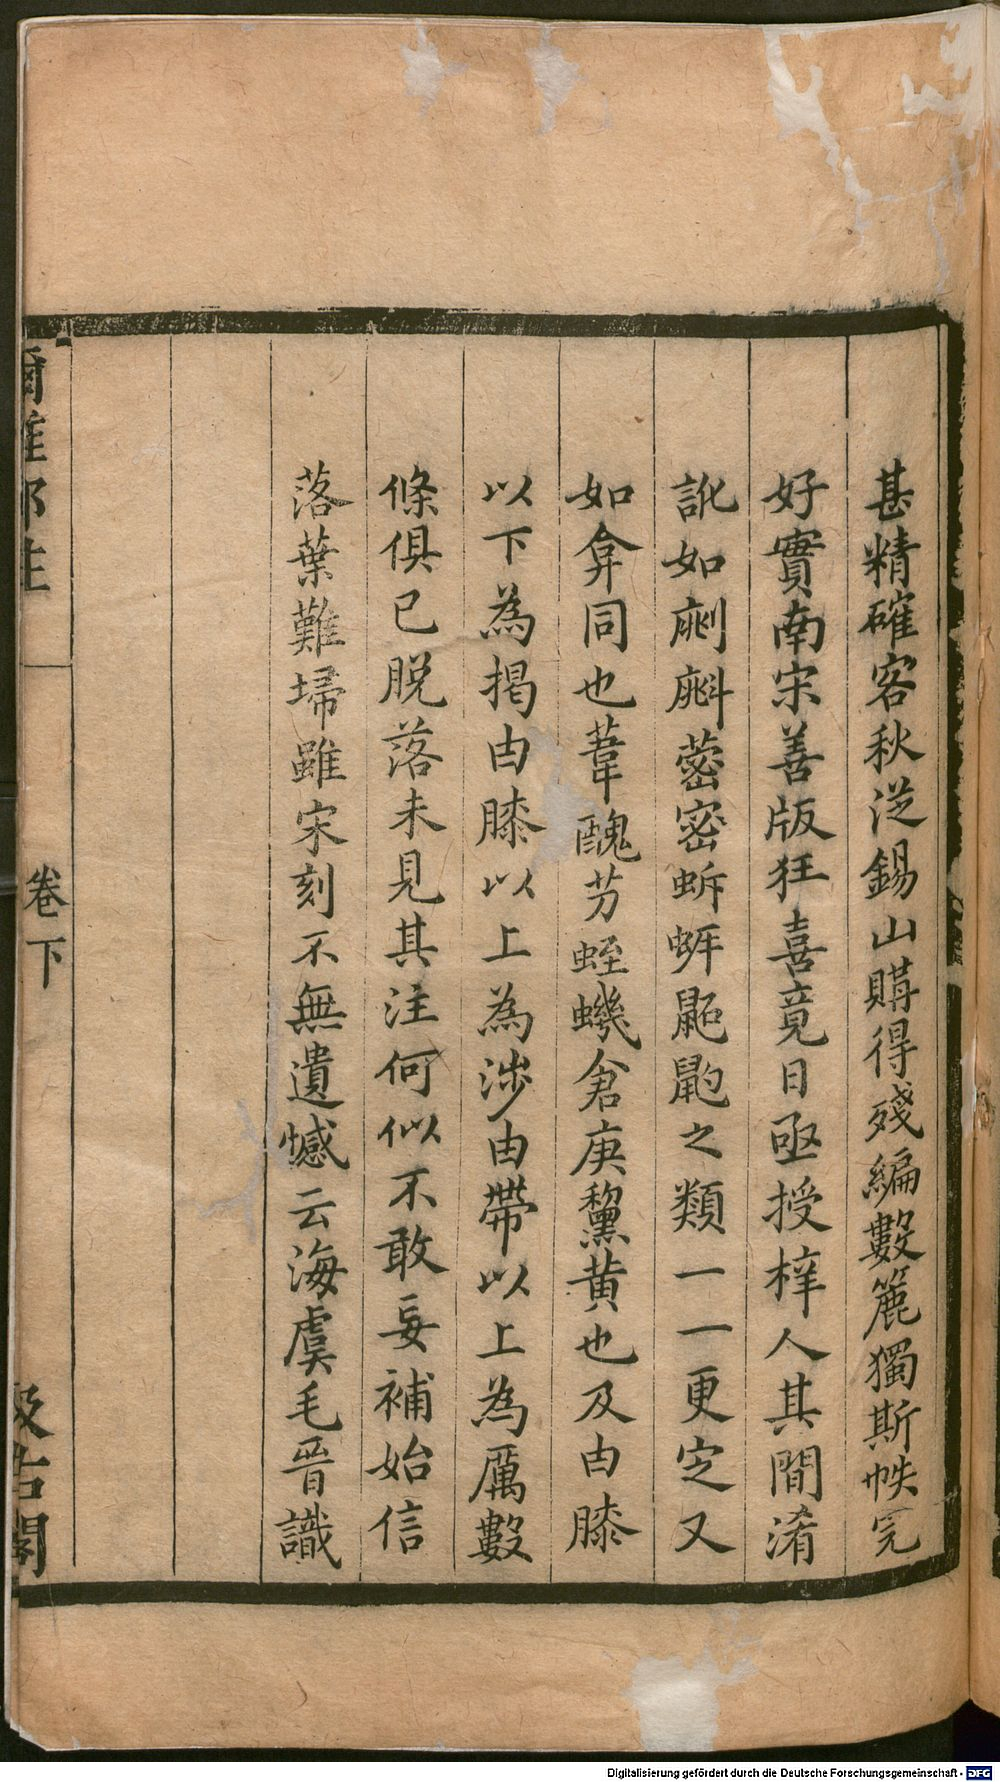 甚精確客秋從錫山購得殘編數簏獨斯帙完
好實南宋善版狂喜竟日亟授梓人其閒淆
訛如劘斪蔤密蚸蚈鼫鼩之類一一更定又
如弇同也葦醜芀蛭蟣倉庚黧黄也及由膝
以下為揭由膝以上為涉由帶以上為厲數
條俱已脫落未見其注何似不敢妄補始信
落葉難埽雖宋刻不無遺憾云海虞毛晉識
爾雅郑注
卷下
汲古閣
Digitalisierung gefördert durch die Deutsche Forschungsgemeinschaft - DFG